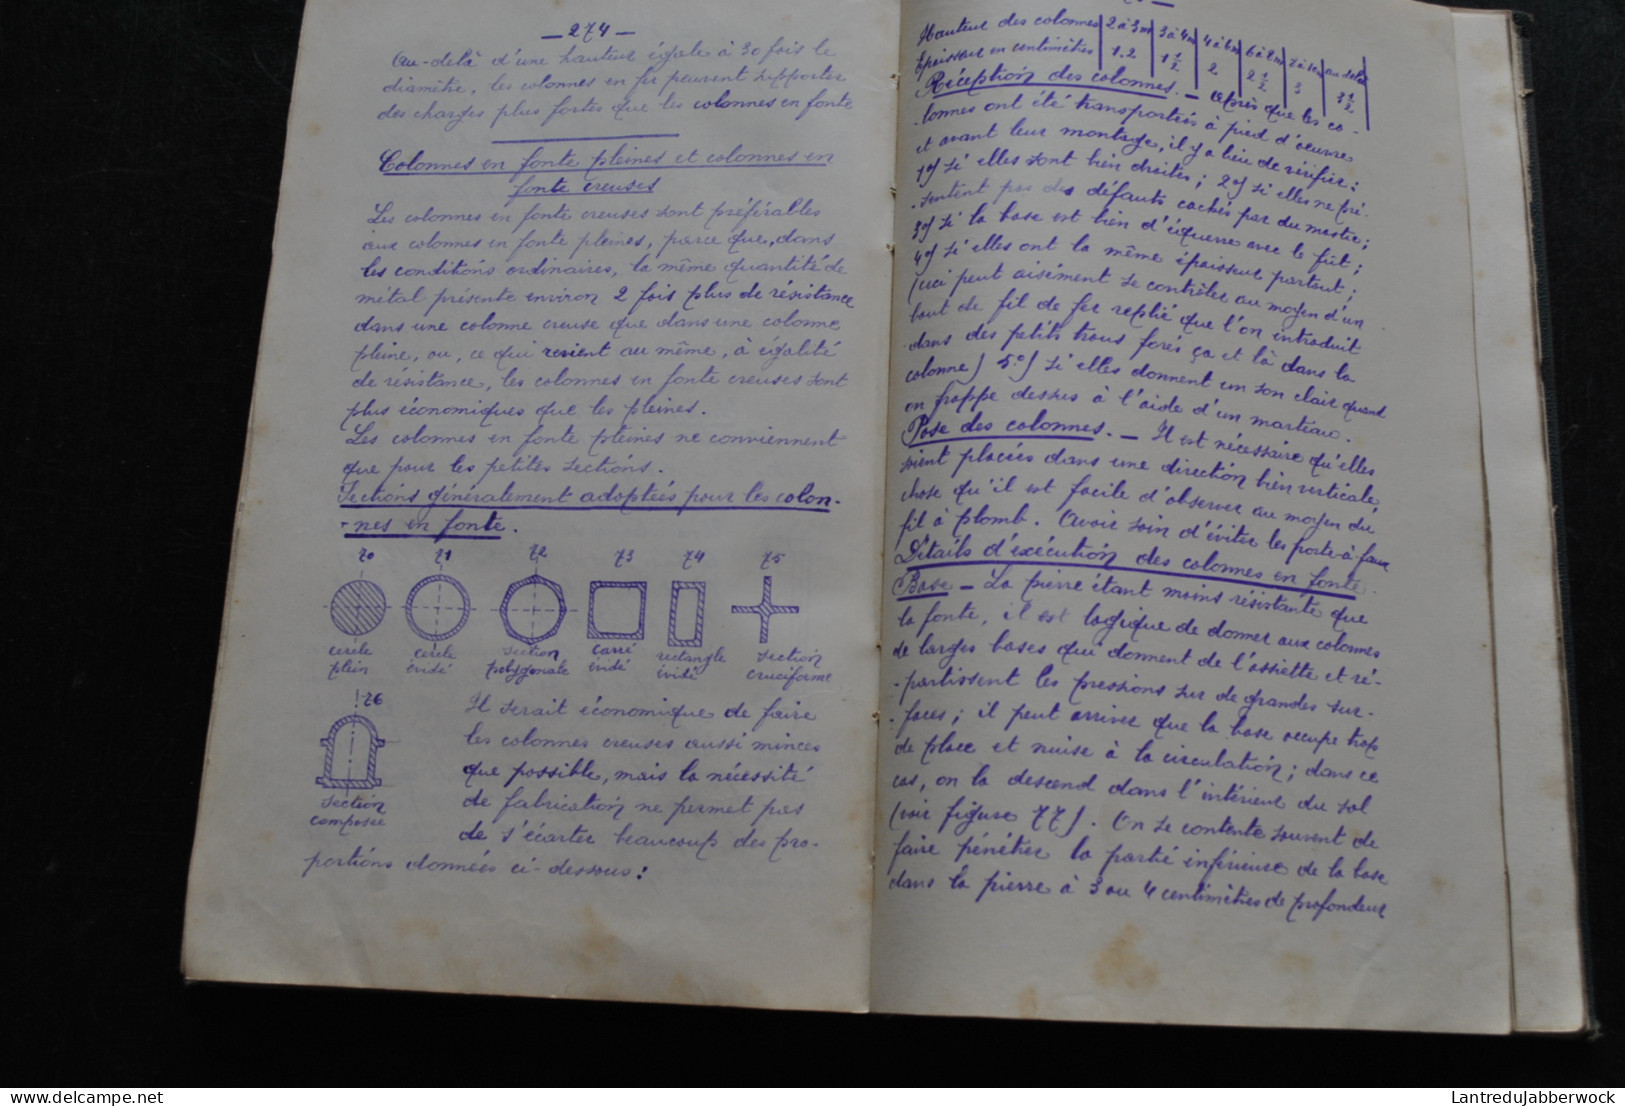 — 274 —
Au-delà d'une hauteur égale à 30 fois le
diamètre, les colonnes en fer peuvent supporter
des charges plus fortes que les colonnes en fonte
Colonnes en fonte pleines et colonnes en
fonte creuses
Les colonnes en fonte creuses sont préférables
aux colonnes en fonte pleines, parce que, dans
les conditions ordinaires, la même quantité de
métal présente environ 2 fois plus de résistance
dans une colonne creuse que dans une colonne
pleine, ou, ce qui revient au même, à égalité
de résistance, les colonnes en fonte creuses sont
plus économiques que les pleines.
Les colonnes en fonte pleines ne conviennent
que pour les petites sections.
Sections généralement adoptées pour les colon-
-nes en fonte.
70 71 72 73 74 75
cercle plein
cercle évidé
section polygonale
carré évidé
rectangle évidé
section cruciforme
76
section
composée
Il serait économique de faire
les colonnes creuses aussi minces
que possible, mais la nécessité
de fabrication ne permet pas
de s'écarter beaucoup des pro-
portions données ci-dessous:
Hauteur des colonnes | 2 à 3m | 3 à 4m | 4 à 6m | 6 à 7m | 7 à 8m | au delà
Epaisseur en centimètres | 1.2 | 1 1/2 | 2 | 2 1/2 | 3 | 3 1/2
Réception des colonnes. — Après que les co-
-lonnes ont été transportées à pied d'œuvre
et avant leur montage, il y a lieu de vérifier:
1°) si elles sont bien droites; 2°) si elles ne pré-
-sentent pas des défauts cachés par du mastic;
3°) si la base est bien d'équerre avec le fût;
4°) si elles ont la même épaisseur partout;
(ceci peut aisément se contrôler au moyen d'un
bout de fil de fer replié que l'on introduit
dans des petits trous forés ça et là dans la
colonne) 5°) si elles donnent un son clair quand
on frappe dessus à l'aide d'un marteau.
Pose des colonnes. — Il est nécessaire qu'elles
soient placées dans une direction bien verticale,
chose qu'il est facile d'observer au moyen du
fil à plomb. Avoir soin d'éviter les porte-à-faux
Détails d'exécution des colonnes en fonte.
Base — La pierre étant moins résistante que
la fonte, il est logique de donner aux colonnes
de larges bases qui donnent de l'assiette et ré-
-partissent les pressions sur de grandes sur-
-faces; il peut arriver que la base occupe trop
de place et nuise à la circulation; dans ce
cas, on la descend dans l'intérieur du sol
(voir figure 77). On se contente souvent de
faire pénétrer la partie inférieure de la base
dans la pierre à 3 ou 4 centimètres de profondeur
LantreduJabberwock